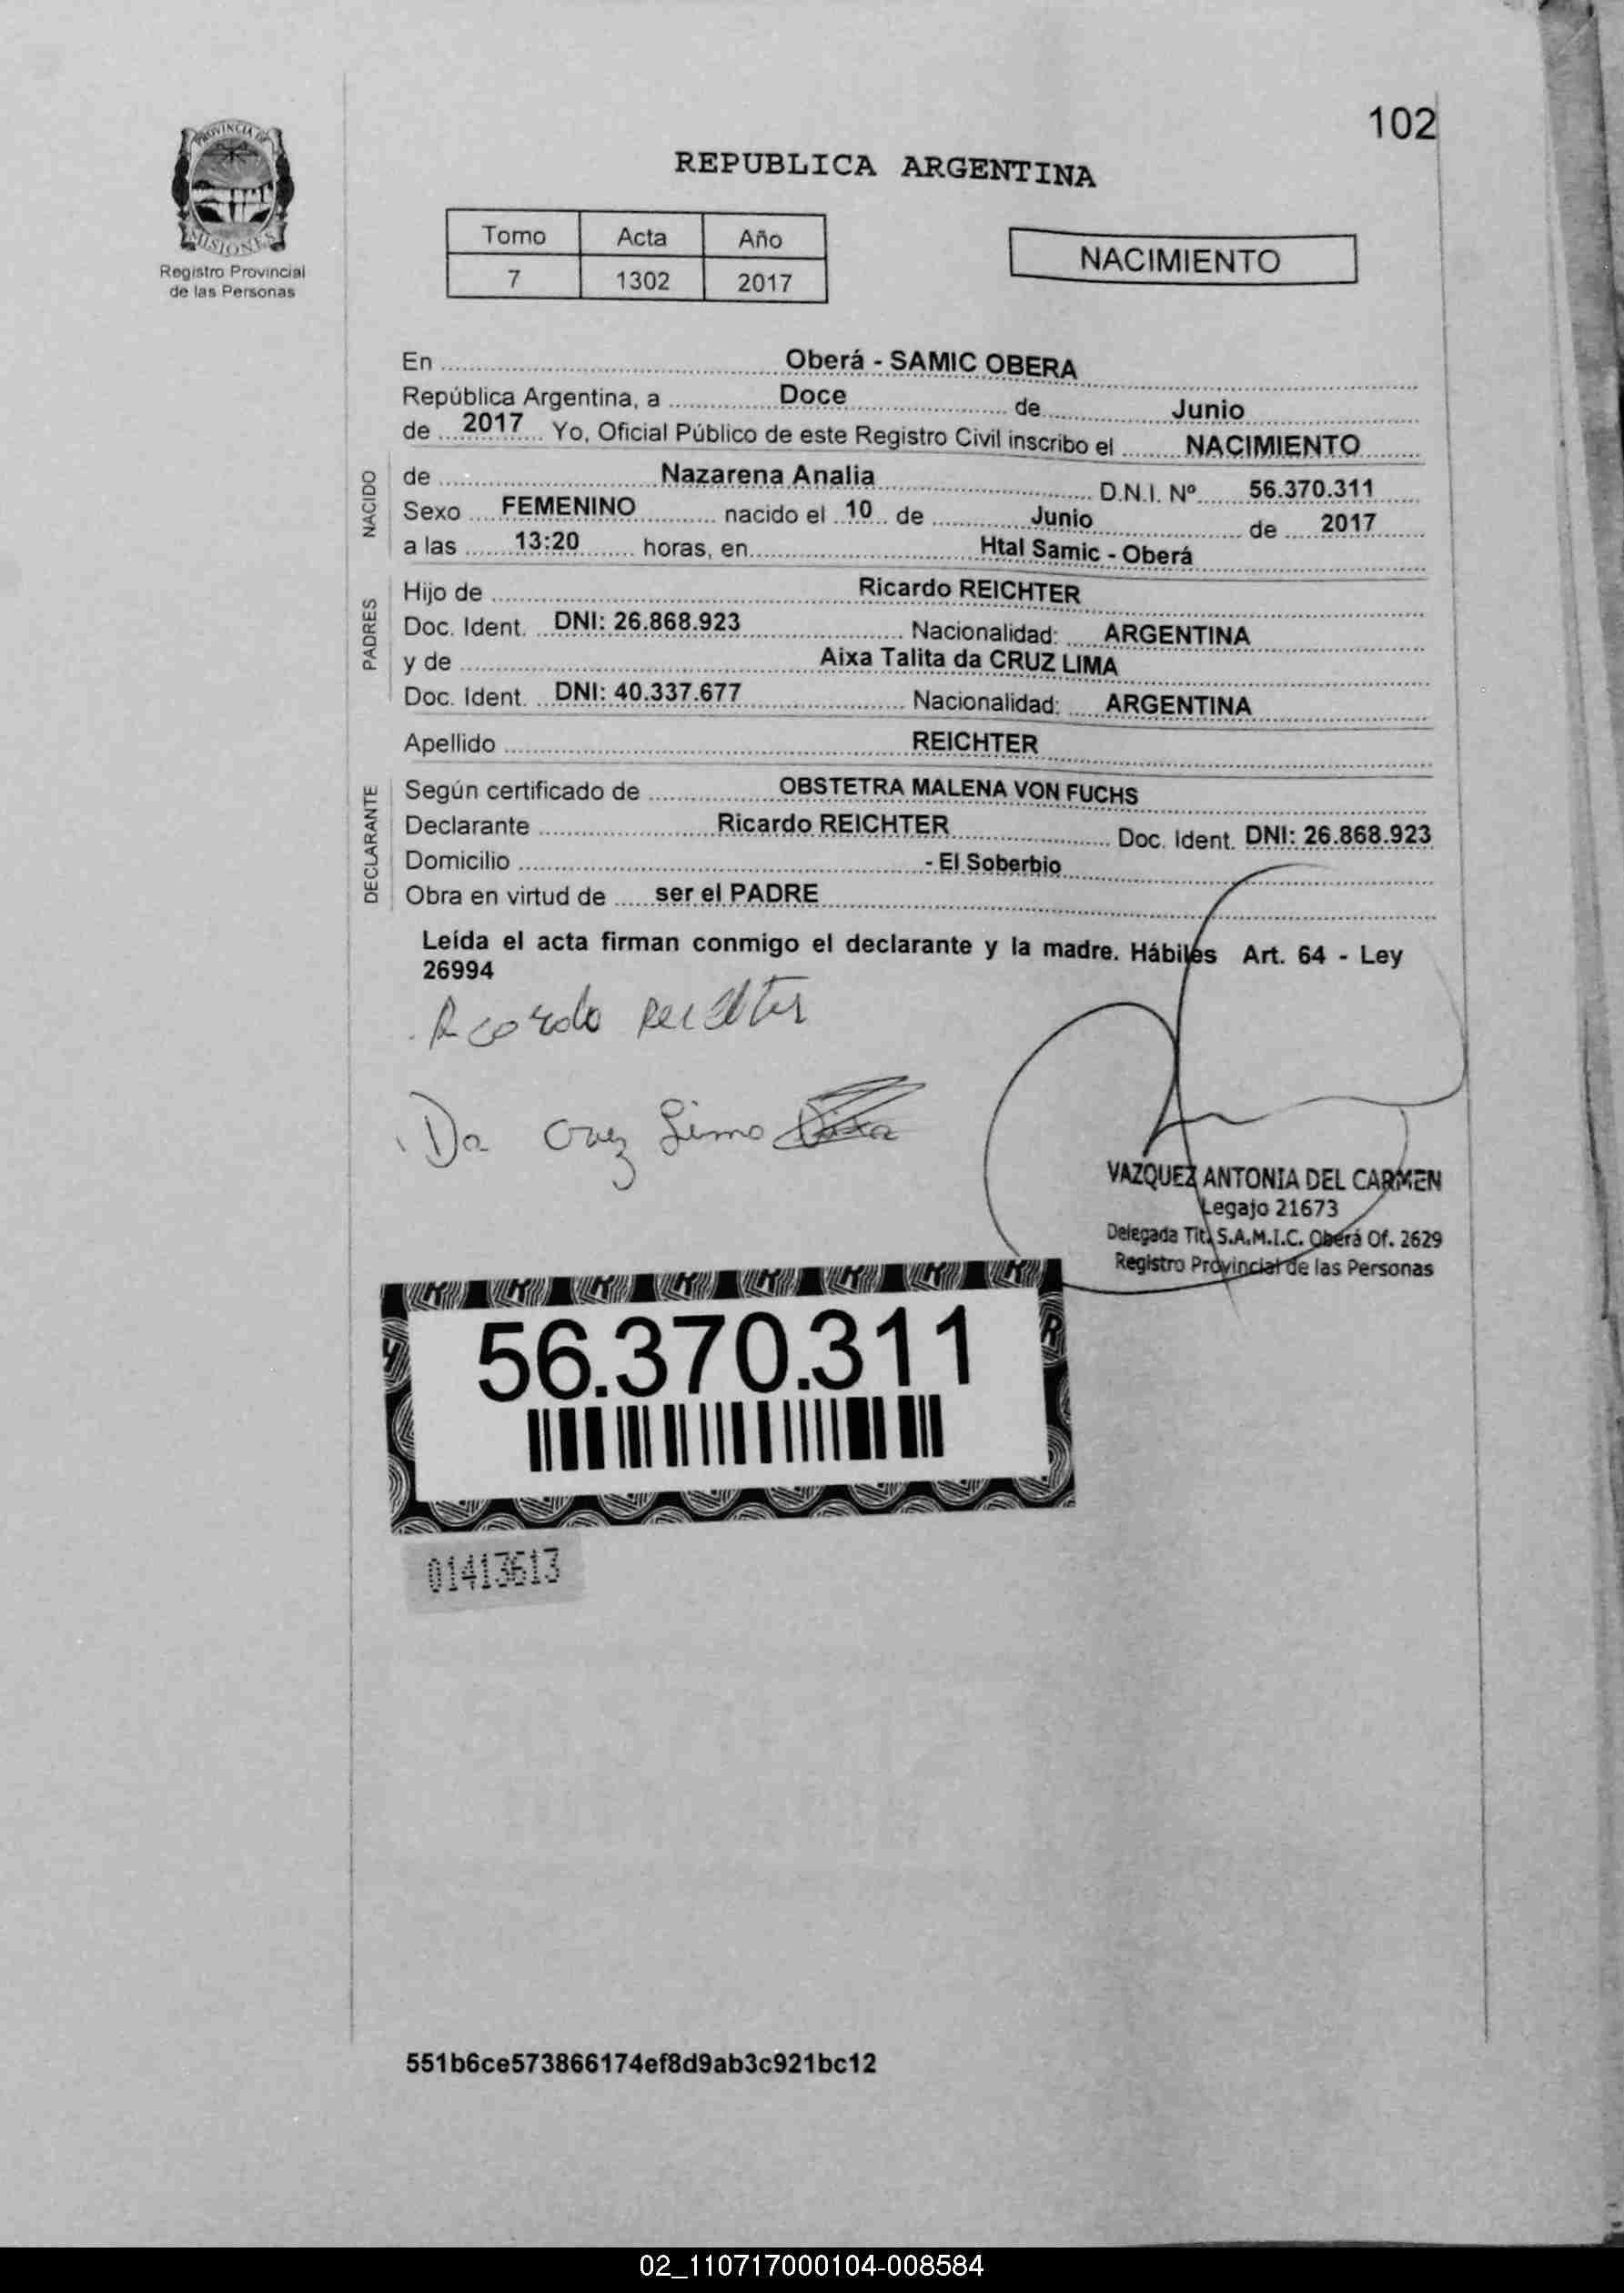 102
PROVINCIA DE
MISIONES
Registro Provincial
de las Personas
REPUBLICA ARGENTINA
Tomo Acta Año
7 1302 2017
NACIMIENTO
En Oberá - SAMIC OBERA
República Argentina, a Doce de Junio
de 2017 Yo, Oficial Público de este Registro Civil inscribo el NACIMIENTO
NACIDO
de Nazarena Analia D.N.I. Nº 56.370.311
Sexo FEMENINO nacido el 10 de Junio de 2017
a las 13:20 horas, en Htal Samic - Oberá
PADRES
Hijo de Ricardo REICHTER
Doc. Ident. DNI: 26.868.923 Nacionalidad: ARGENTINA
y de Aixa Talita da CRUZ LIMA
Doc. Ident. DNI: 40.337.677 Nacionalidad: ARGENTINA
Apellido REICHTER
DECLARANTE
Según certificado de OBSTETRA MALENA VON FUCHS
Declarante Ricardo REICHTER Doc. Ident. DNI: 26.868.923
Domicilio - El Soberbio
Obra en virtud de ser el PADRE
Leída el acta firman conmigo el declarante y la madre. Hábiles Art. 64 - Ley
26994
Da Cruz Lima
VAZQUEZ ANTONIA DEL CARMEN
Legajo 21673
Delegada Tit. S.A.M.I.C. Oberá Of. 2629
Registro Provincial de las Personas
56.370.311
01413613
551b6ce573866174ef8d9ab3c921bc12
02_110717000104-008584